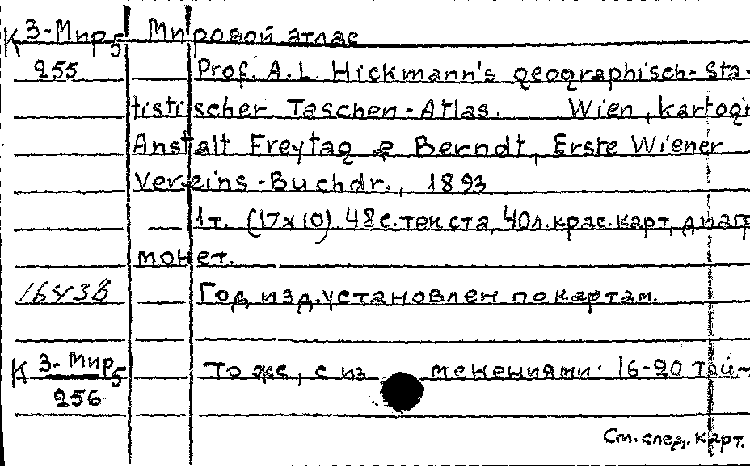 К 3-Мир5 Мировой атлас
255 Prof. A. L. Hickmann's geographisch-Sta-
tistischer Taschen-Atlas. Wien, kartogr
Anstalt Freytag & Berndt, Erste Wiener
Vereins-Buchdr., 1893
1т. (17х10) 48с.текста, 40л.крас.карт, диагр
монет.
Год изд. установлен по картам.
К 3-Мир5 То же, с из менениями. 16-20 тый-
256
См. след. карт.